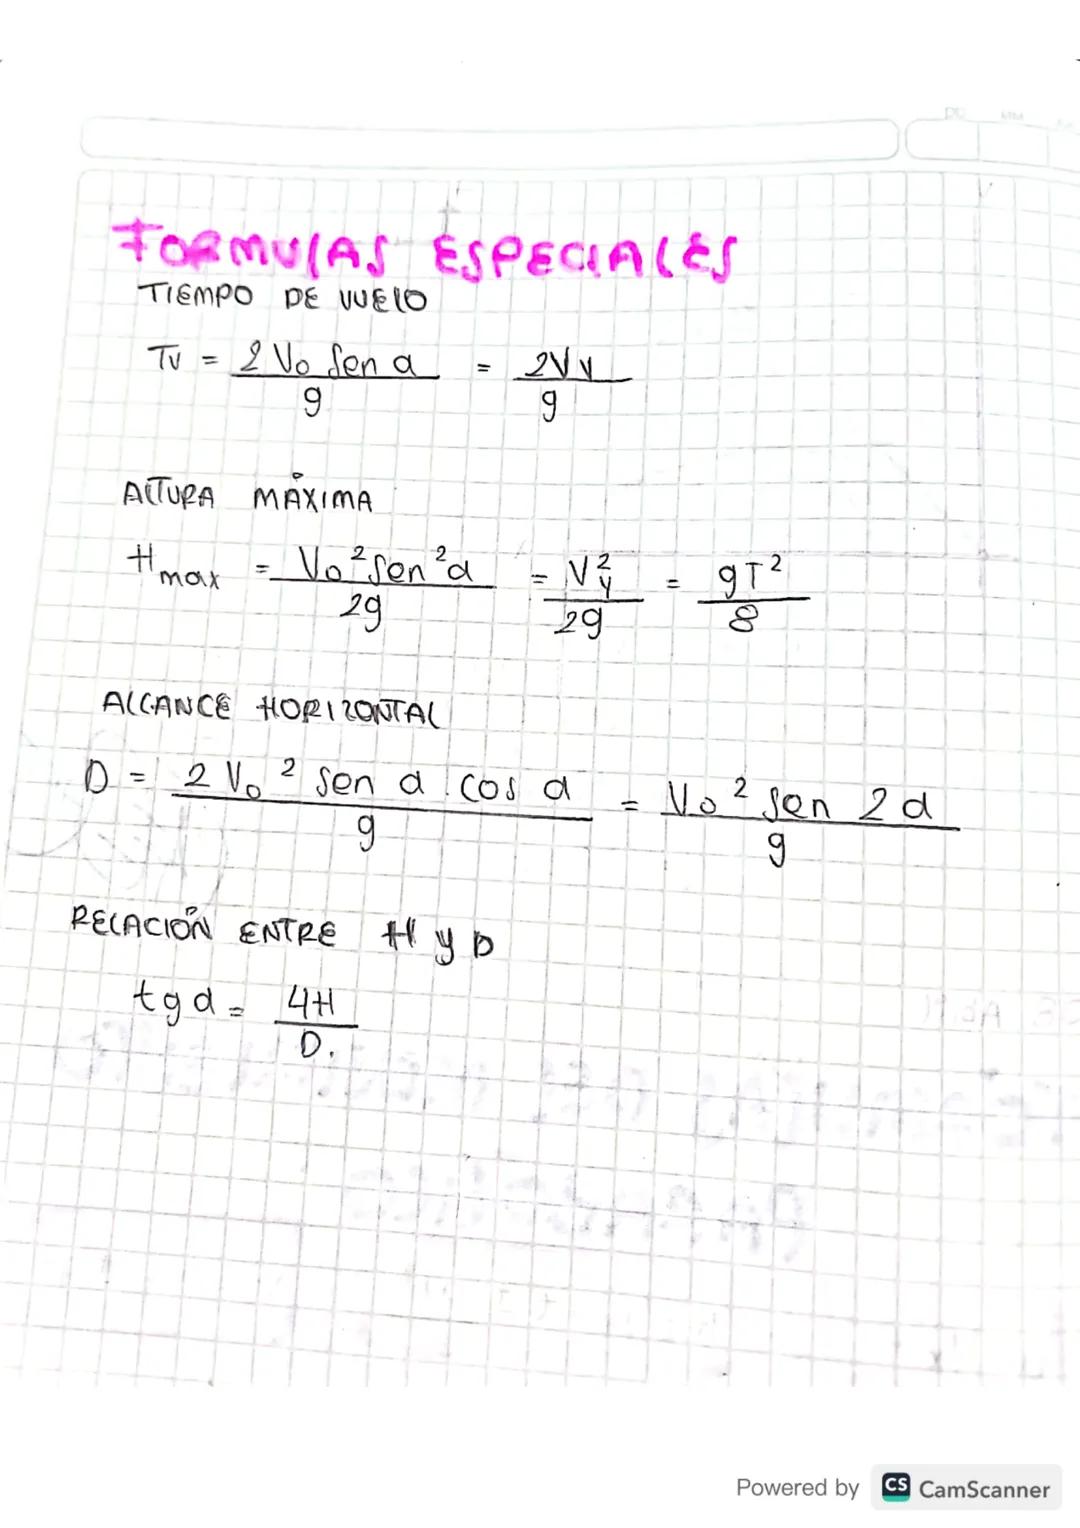 FORMULAS ESPECIALES
TIEMPO DE VUELO
Tv = 2 Vo Sen α / g = 2Vy / g
ALTURA MÁXIMA
Hmax = Vo² Sen² α / 2g = Vy² / 2g = gT² / 8
ALCANCE HORIZONTAL
D = 2 Vo² Sen α . cos α / g = Vo² Sen 2α / g
RELACIÓN ENTRE H y D
tg α = 4H / D.
Powered by CS CamScanner